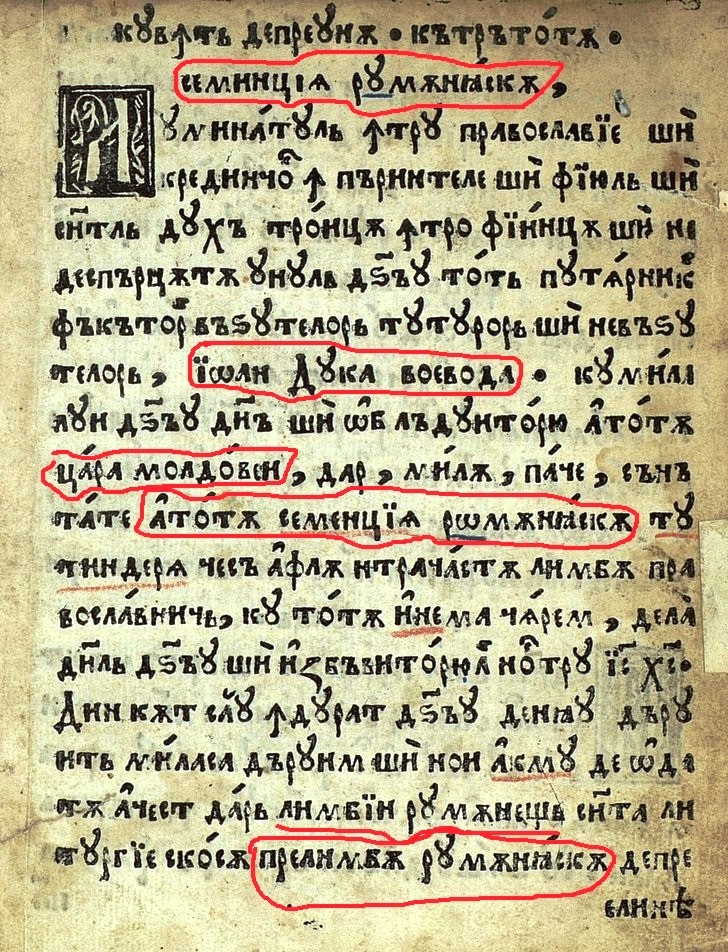 кꙋвѫть депреꙋнѫ • кѫтрътѻ́тѫ •
семинцїѧ рꙋмѫнѣ́скѫ,
Лꙋмина́тꙋль ꙟтрꙋ правослаⷡ҇їе шѝ
крединчѻ̑ ꙟ пъринтеле шѝ фїюль шѝ
сн҃тль дꙋхъ трѻ́ицѫ ꙟтро фїи́нцѫ шѝ не
деспърцѫтѫ ꙋнꙋль дꙁ҃ъꙋ тѻ́ть пꙋтѧ́рникꙋ
фъкътѻр въꙁꙋтелорь тꙋтꙋрорь шѝ невъꙁꙋ
телорь, їѡан Дꙋка воевода • кꙋ ми́ла
лꙋи дꙁ҃ъꙋ ди́нъ шѝ ѡ҆блъдꙋитѻ́рю а҆тѻ́тѫ
ца́ра молдѻ́веи, дар, ми́лѫ, па́че, сънъ
та́те а҆тѻ́тѫ семенцїѧ рѡмѫнѣ́скѫ тꙋ
тиндерѧ чесъ а҆флѫ итрача́стѫ лимбѫ пра
восла́вничь, кꙋ тѻ́тѫ и҆́нема чѧ́рем, дела
ди́ль дꙁ҃ъꙋ шѝ и҆ꙁбъвитѻ́рюл нѻ̑трꙋ і҆с҃ х҃с
Дин кѫт сàꙋ ꙟдꙋрат дꙁ҃ъꙋ денѡꙋ дърꙋ
ить ми́ласа дърꙋим шѝ нои а҆кмꙋ де ѡ҆да
тѫ а҆чест да́рь лимбїи рꙋмѫнещи сн҃та ли
тꙋргїе скѻ́сѫ прелимбѫ рꙋмѫнѣ́скѫ депре
елинѣ